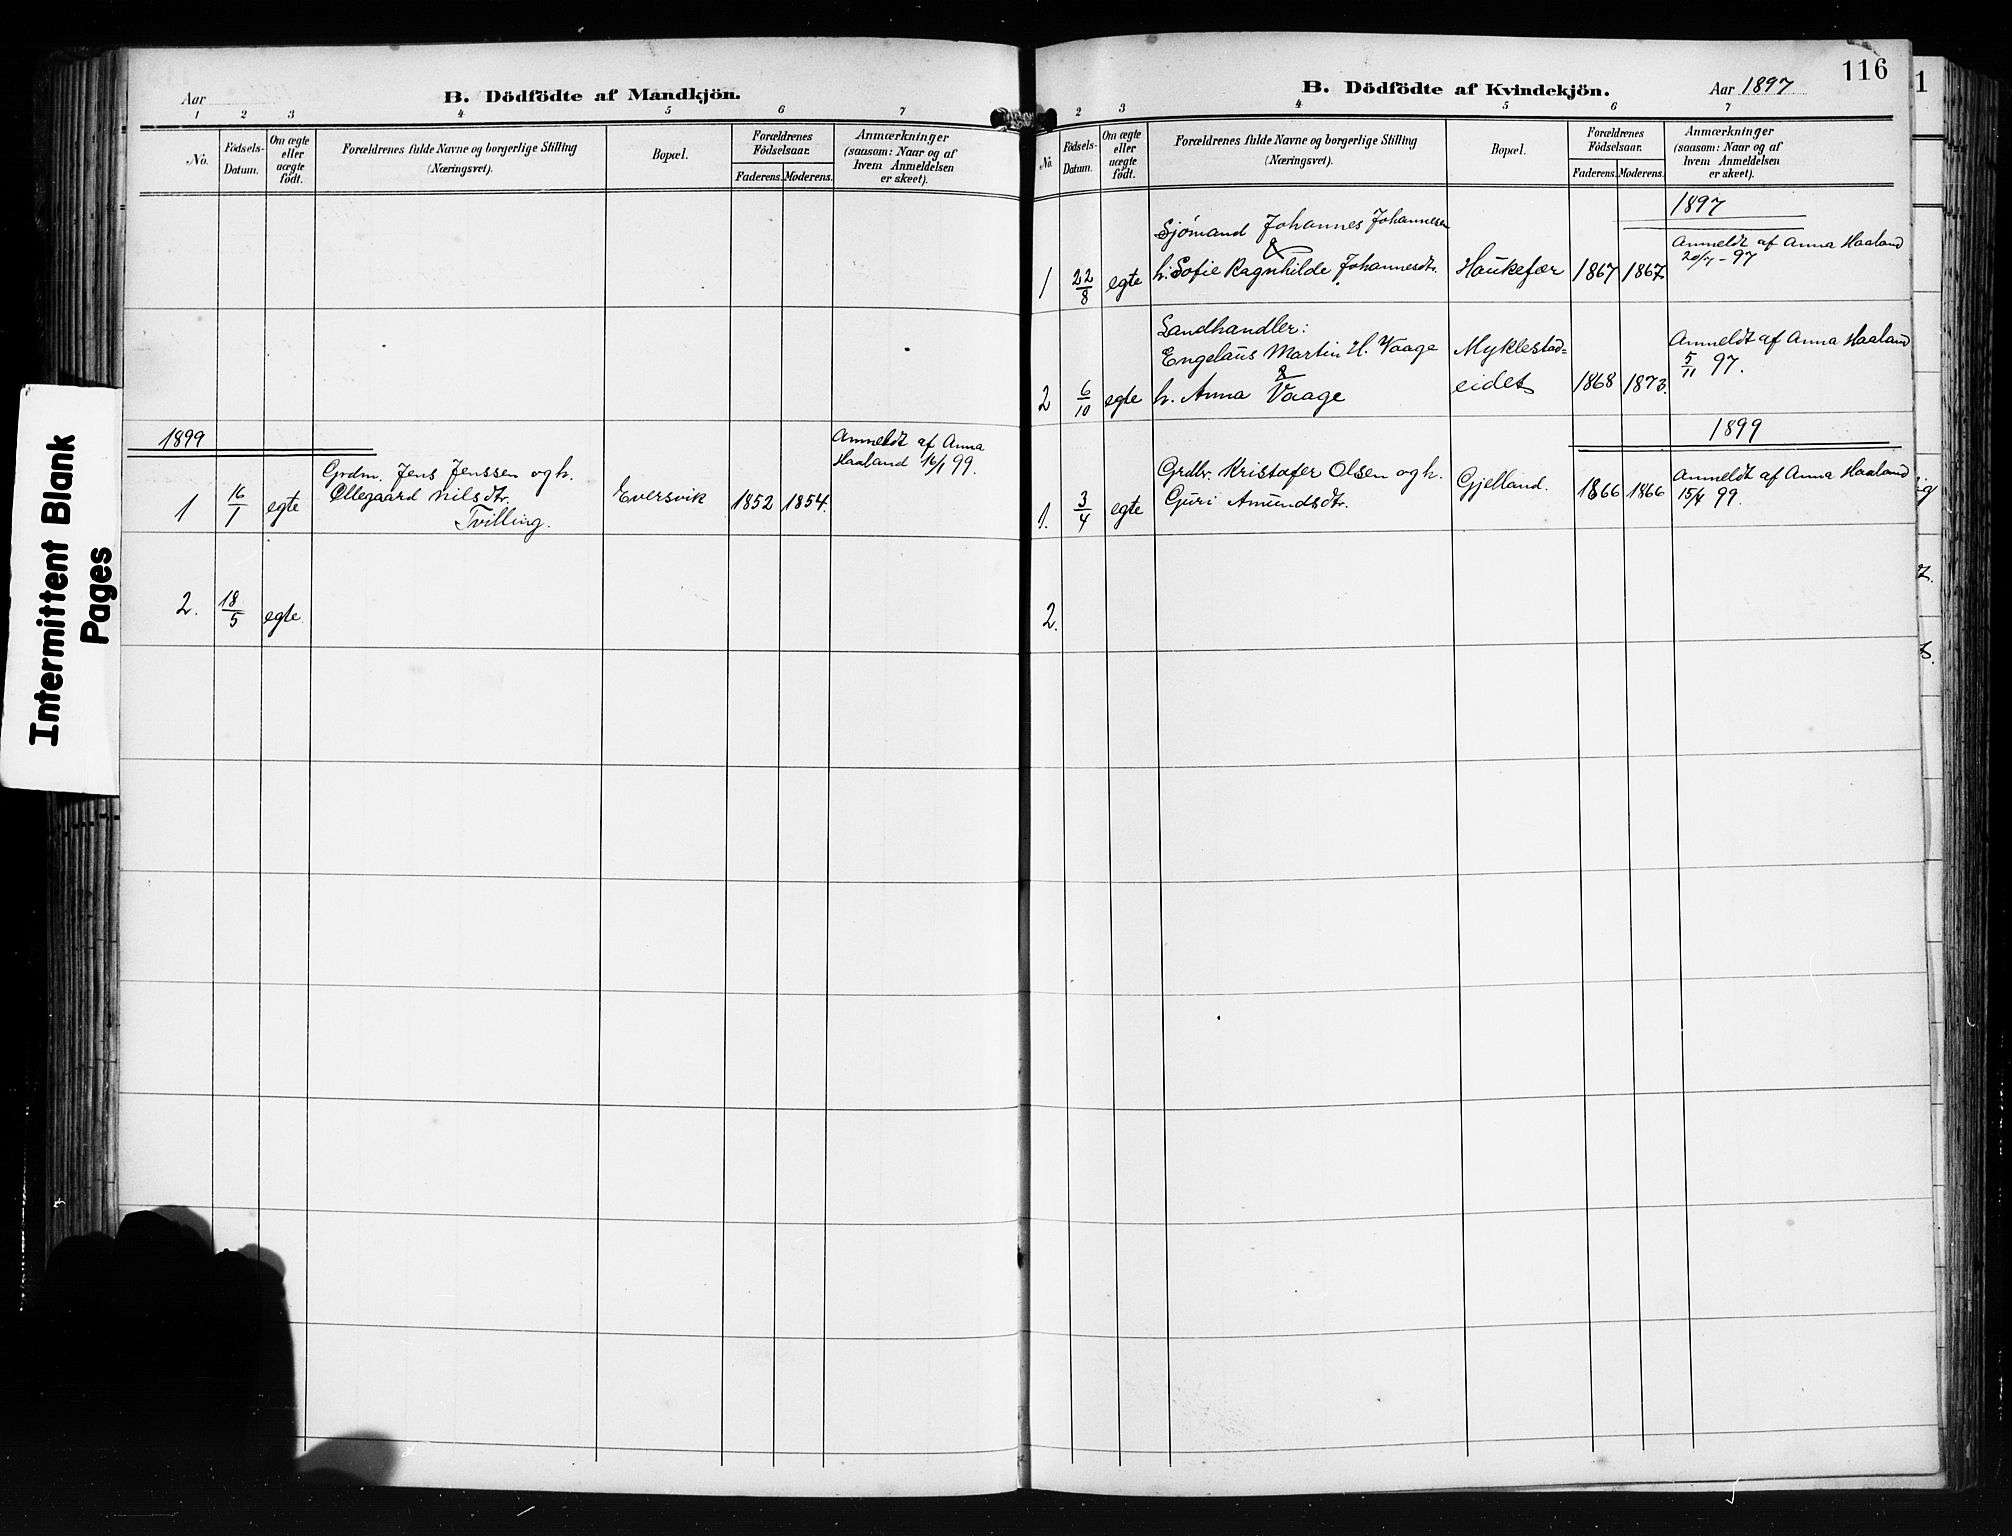 Intermittent Blank
Pages
Aar
B. Dödfödte af Mandkjön.
1 2 3 4 5 6 7
No.
Födsels-
Datum.
Om ægte
eller
uægte
födt.
Forældrenes fulde Navne og borgerlige Stilling
(Næringsvei).
Bopæl.
Forældrenes
Födselsaar.
Faderens. Moderens.
Anmærkninger
(saasom: Naar og af
hvem Anmeldelsen
er skeet).
1899
Anmeldt af Anna
Haaland 16/1 99.
Grdm. Jens Jenssen og h.
1 16/1 egte Ollegaard Nilsdtr. Eversvik 1852 1854.
Tvilling.
2. 18/5 egte.
116
B. Dödfödte af Kvindekjön.
Aar 1897
2 3 4 5 6 7
No.
Födsels-
Datum.
Om ægte
eller
uægte
födt.
Forældrenes fulde Navne og borgerlige Stilling
(Næringsvei).
Bopæl.
Forældrenes
Födselsaar.
Faderens. Moderens.
Anmærkninger
(saasom: Naar og af
hvem Anmeldelsen
er skeet).
1897
Sjømand Johannes Johannesen
&
Anmeldt af Anna Haaland
97
1 22/8 egte h. Sofie Ragnhilde Johannesdtr. Haukefær 1867 1867.
Landhandler:
Engelaus Martin H. Vaage Myklestad=
&
Anmeldt af Anna Haaland
5/11 97.
2 6/10 egte h. Anna Vaage eidet 1868 1873.
1899
Grdbr. Kristofer Olsen og h. Gjelland. 1866 1866 Anmeldt af Anna Haaland
1. 3/4 egte Guri Amundsdtr. 15/4 99.
2.